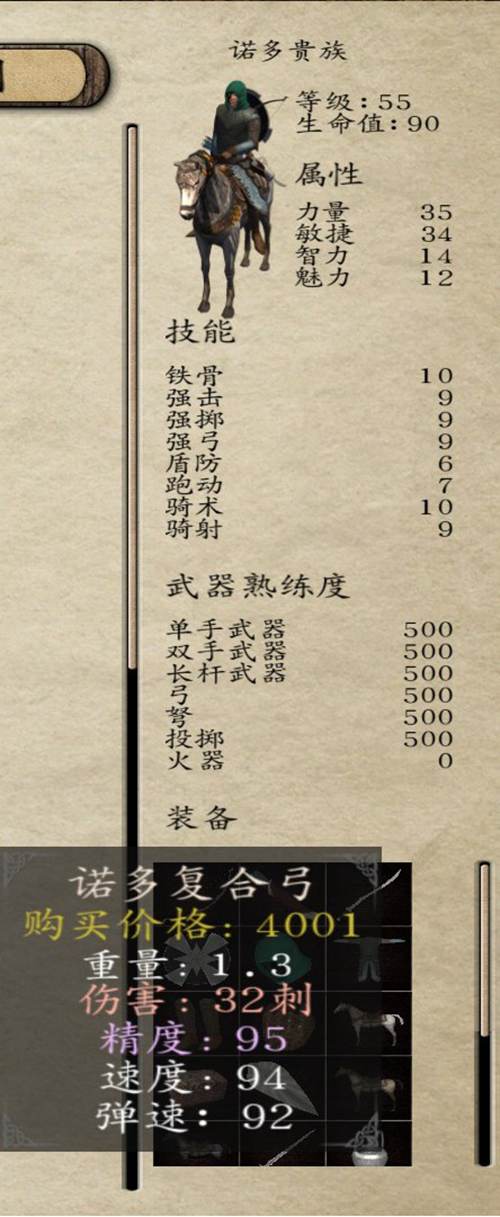 诺多贵族
等级：55
生命值：90
属性
力量 35
敏捷 34
智力 14
魅力 12
技能
铁骨 10
强击 9
强掷 9
强弓 9
盾防 6
跑动 7
骑术 10
骑射 9
武器熟练度
单手武器 500
双手武器 500
长杆武器 500
弓 500
弩 500
投掷 500
火器 0
装备
诺多复合弓
购买价格：4001
重量：1.3
伤害：32刺
精度：95
速度：94
弹速：92